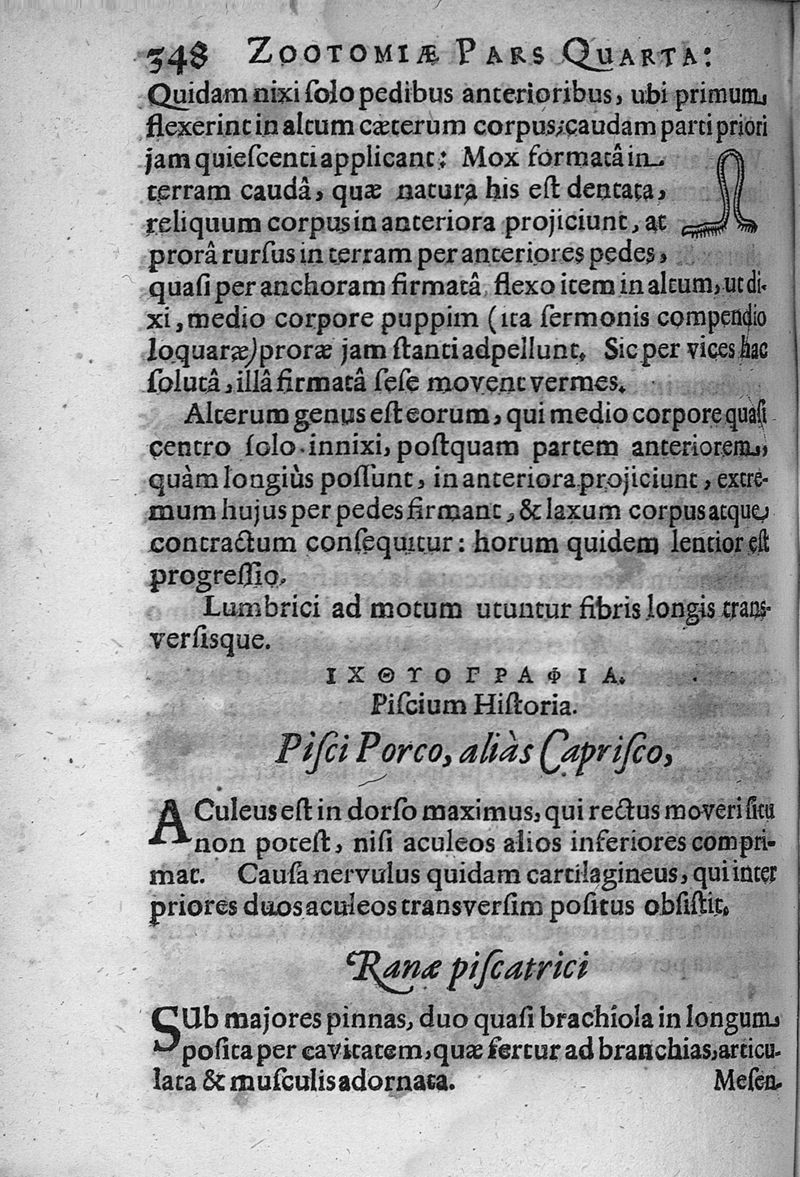 348 ZOOTOMIÆ PARS QUARTA:
Quidam nixi ſolo pedibus anterioribus, ubi primum
flexerint in altum cæterum corpus; caudam parti priori
jam quieſcenti applicant: Mox formatâ in
terram caudâ, quæ natura his eſt dentata,
reliquum corpus in anteriora projiciunt, at
prorâ rurſus in terram per anteriores pedes,
quaſi per anchoram firmatâ flexo item in altum, ut di-
xi, medio corpore puppim (ita ſermonis compendio
loquaræ) proræ jam ſtanti adpellunt. Sic per vices hac
ſolutâ, illâ firmatâ ſeſe movent vermes.
Alterum genus eſt eorum, qui medio corpore quaſi
centro ſolo innixi, poſtquam partem anteriorem,
quàm longiùs poſſunt, in anteriora projiciunt, extre-
mum hujus per pedes firmant, & laxum corpus atque
contractum conſequitur: horum quidem lentior eſt
progreſſio.
Lumbrici ad motum utuntur fibris longis trans-
verſisque.
ΙΧΘΥΟΓΡΑΦΙΑ.
Piſcium Hiſtoria.
Piſci Porco, aliàs Capriſco,
ACuleus eſt in dorſo maximus, qui rectus moveri ſitu
non poteſt, niſi aculeos alios inferiores compri-
mat. Cauſa nervulus quidam cartilagineus, qui inter
priores duos aculeos transverſim poſitus obſiſtit.
Ranæ piſcatrici
SUb majores pinnas, duo quaſi brachiola in longum
poſita per cavitatem, quæ fertur ad branchias, articu-
lata & muſculis adornata.
Meſen-